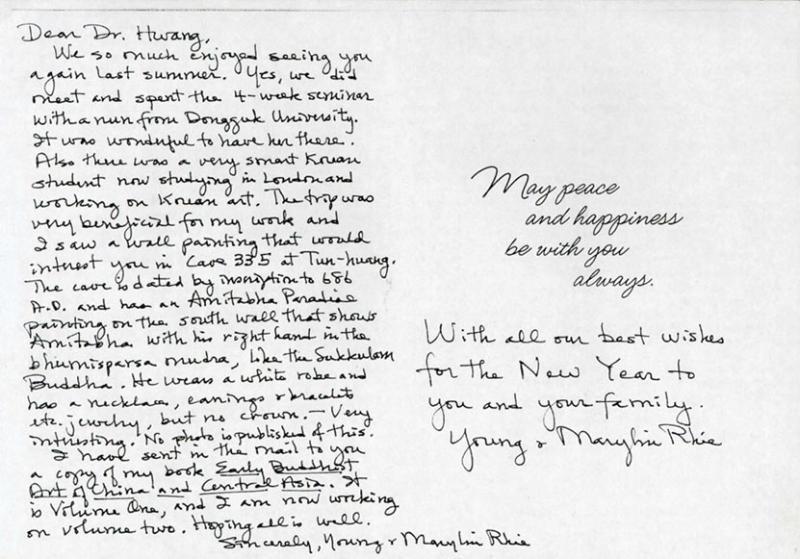 Dear Dr. Hwang,
We so much enjoyed seeing you
again last summer. Yes, we did
meet and spent the 4-week seminar
with a nun from Dongguk University.
It was wonderful to have her there.
Also there was a very smart Korean
student now studying in London and
working on Korean art. The trip was
very beneficial for my work and
I saw a wall painting that would
interest you in Cave 335 at Tun-huang.
The cave is dated by inscription to 686
A.D. and has an Amitabha Paradise
painting on the south wall that shows
Amitabha with his right hand in the
bhumisparsa mudra, like the Sukkulam
Buddha. He wears a white robe and
has a necklace, earrings & bracelets
etc. jewelry, but no crown. — Very
interesting. No photo is published of this.
I have sent in the mail to you
a copy of my book Early Buddhist
Art of China and Central Asia. It
is Volume One, and I am now working
on volume two. Hoping all is well.
Sincerely, Young & Marylin Rhie
May peace
and happiness
be with you
always.
With all our best wishes
for the New Year to
you and your family.
Young & Marylin Rhie